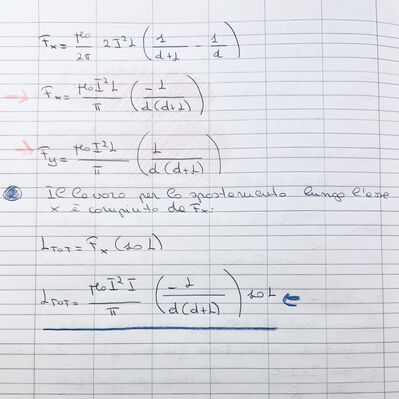 Fx = μ₀/2π 2I²L (1/(d+L) - 1/d)
→ Fx = μ₀I²L/π (-L/(d(d+L)))
→ Fy = μ₀I²L/π (L/(d(d+L)))
2 Il lavoro per lo spostamento lungo l'asse
x è compiuto da Fx:
LTOT = Fx (10L)
LTOT = μ₀I²I/π (-L/(d(d+L))) 10L ←